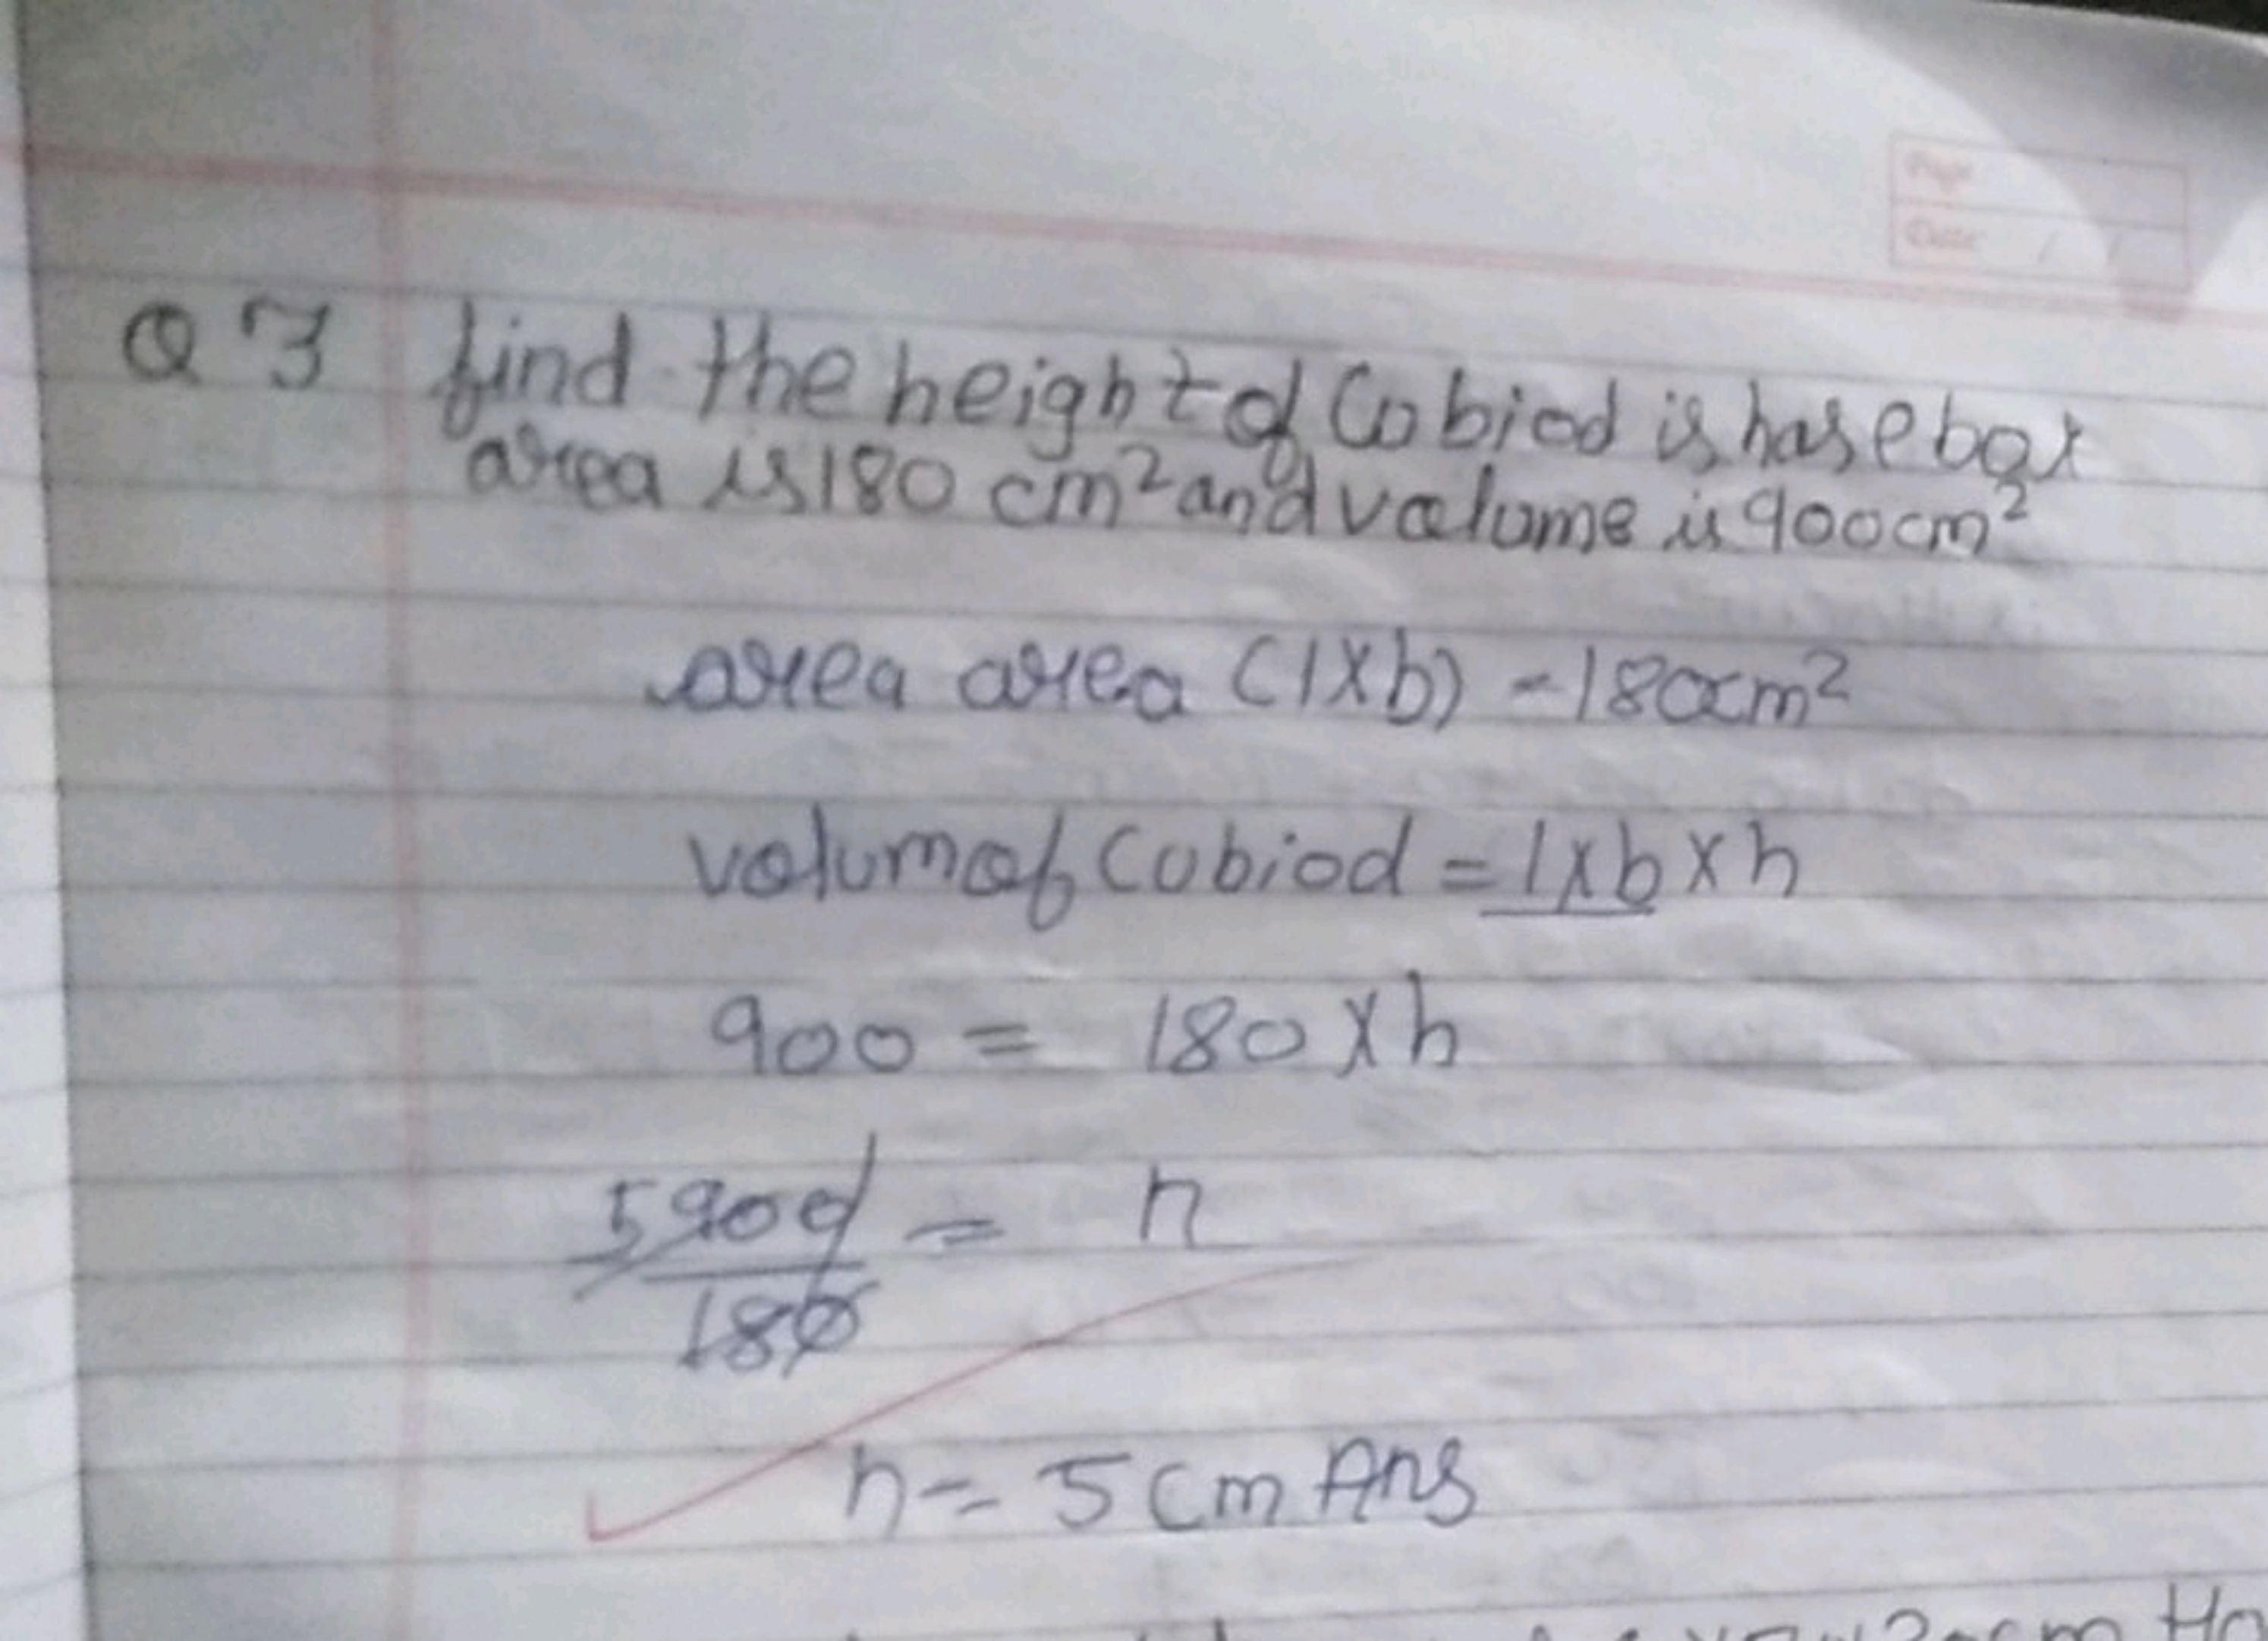 Page
Date / /
Q 3 find the height of Cobiod is base box
area is 180 cm² and volume is 900cm²
area area (l×b) - 180cm²
volum of Cubiod = l×b×h
900 = 180×h
5 900 = h
180
h = 5 cm Ans